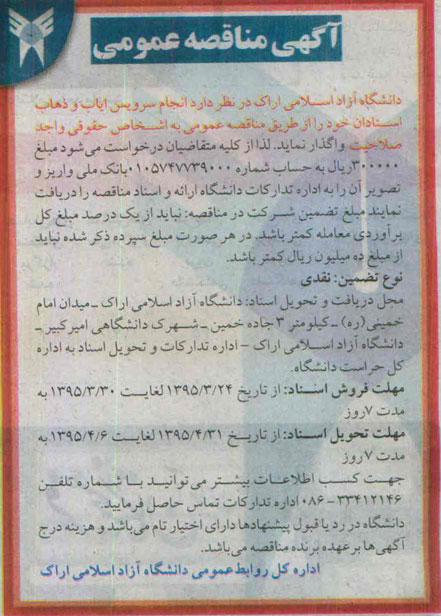 آگهی مناقصه عمومی
دانشگاه آزاد اسلامی اراک در نظر دارد انجام سرویس ایاب و ذهاب
استادان خود را از طریق مناقصه عمومی به اشخاص حقوقی واجد
صلاحیت واگذار نماید. لذا از کلیه متقاضیان درخواست می‌شود مبلغ
۳۰۰۰۰۰ریال به حساب شماره ۰۱۰۵۷۴۷۷۳۹۰۰۰بانک ملی واریز و
تصویر آن را به اداره تدارکات دانشگاه ارائه و اسناد مناقصه را دریافت
نمایند مبلغ تضمین شرکت در مناقصه: نباید از یک درصد مبلغ کل
برآوردی معامله کمتر باشد. در هر صورت مبلغ سپرده ذکر شده نباید
از مبلغ ده میلیون ریال کمتر باشد.
نوع تضمین: نقدی
محل دریافت و تحویل اسناد: دانشگاه آزاد اسلامی اراک ـ میدان امام
خمینی(ره) ـ کیلومتر ۳ جاده خمین ـ شهرک دانشگاهی امیرکبیر ـ
دانشگاه آزاد اسلامی اراک - اداره تدارکات و تحویل اسناد به اداره
کل حراست دانشگاه.
مهلت فروش اسناد: از تاریخ ۱۳۹۵/۳/۲۴ لغایت ۱۳۹۵/۳/۳۰ به
مدت ۷روز
مهلت تحویل اسناد: از تاریخ ۱۳۹۵/۴/۳۱ لغایت ۱۳۹۵/۴/۶ به
مدت ۷روز
جهت کسب اطلاعات بیشتر می‌توانید با شماره تلفن
۳۳۴۱۲۱۴۶-۰۸۶ اداره تدارکات تماس حاصل فرمایید.
دانشگاه در رد یا قبول پیشنهادها دارای اختیار تام می‌باشد و هزینه درج
آگهی‌ها بر عهده برنده مناقصه می‌باشد.
اداره کل روابط عمومی دانشگاه آزاد اسلامی اراک